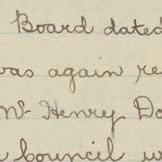 Board dated
was again re
Mr Henry Do
Council, w